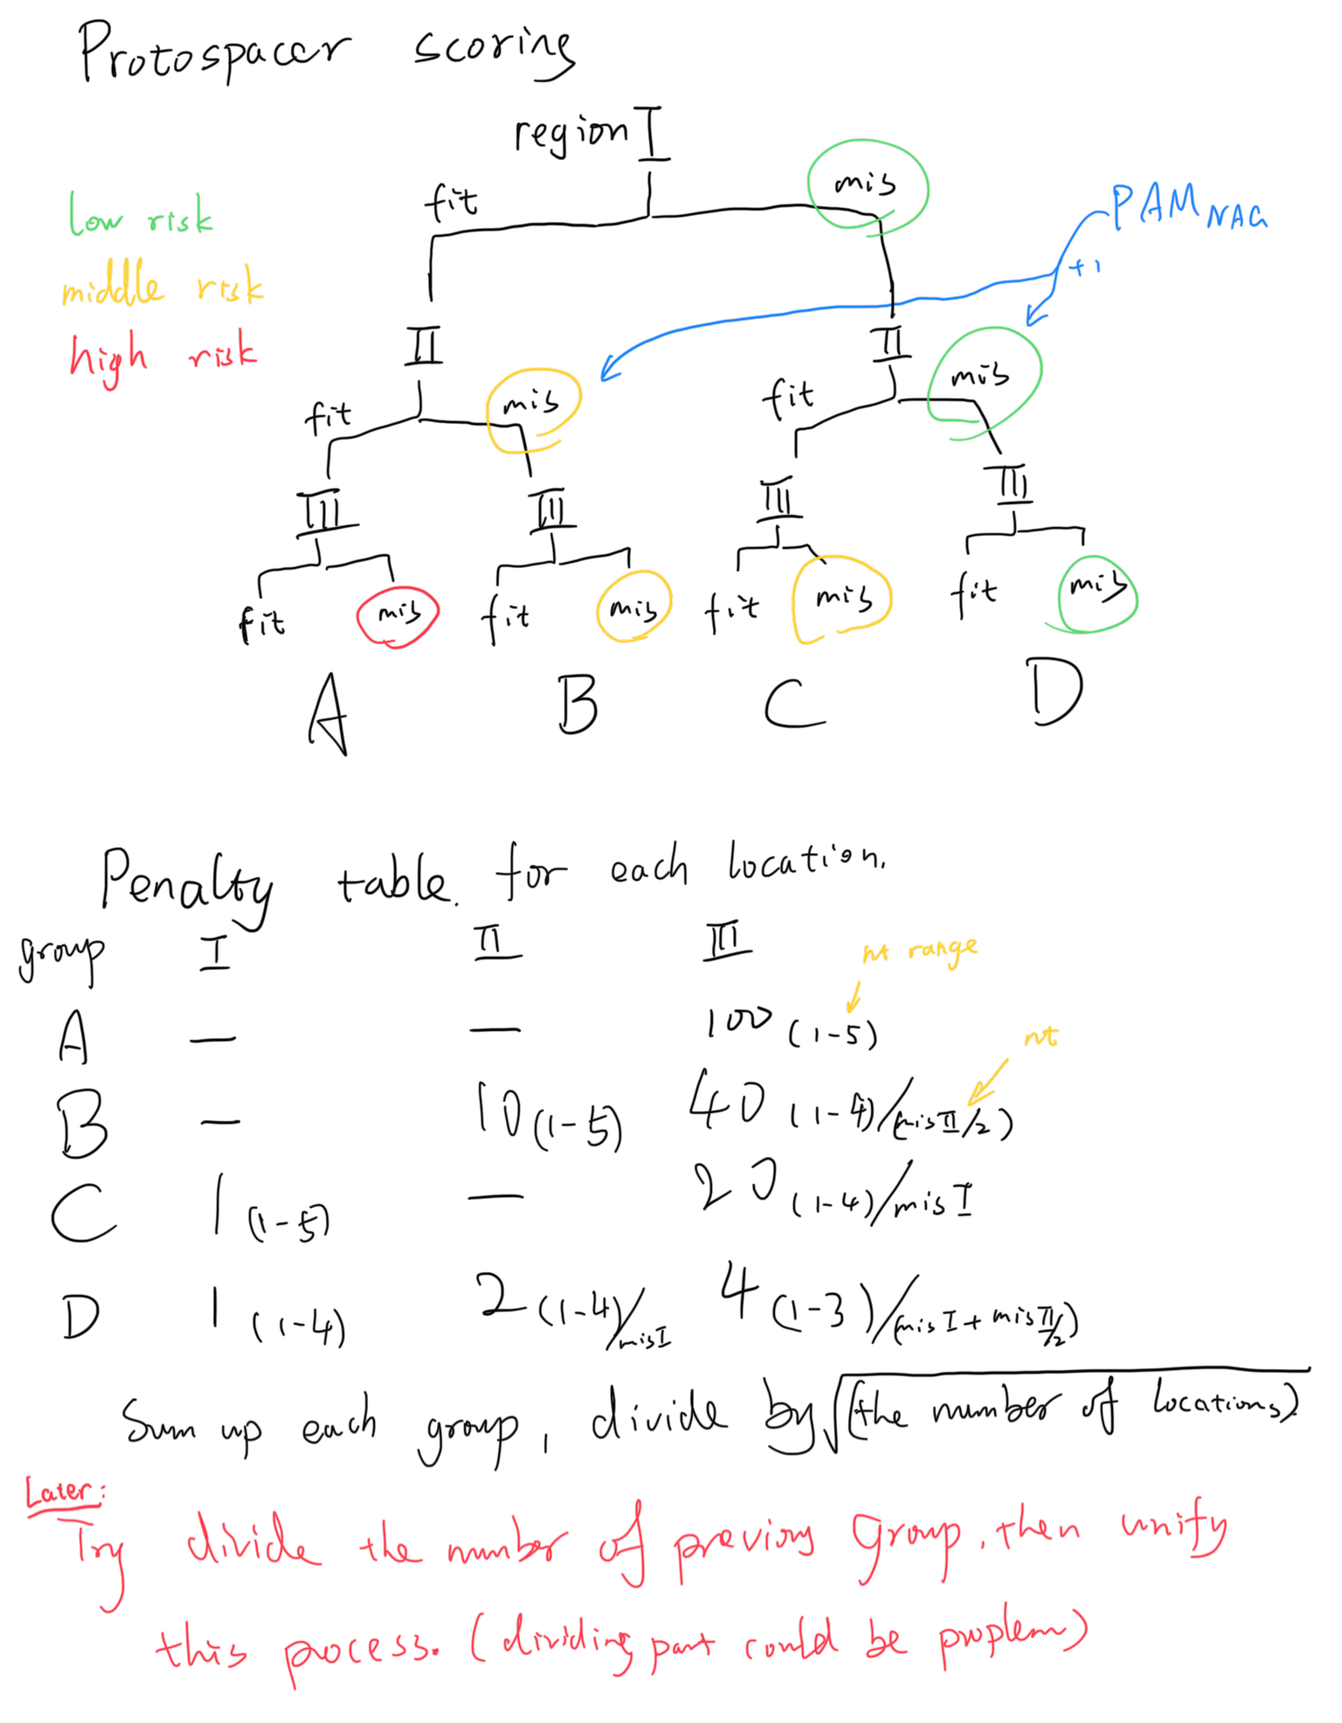 Protospacer scoring
region I
fit mis
low risk
middle risk
high risk
PAM NAG
+1
II II
fit mis fit mis
III III III III
fit mis fit mis fit mis fit mis
A B C D
Penalty table. for each location.
group I II III
nt range
A — — 100 (1-5)
nt
B — 10 (1-5) 40 (1-4)/(misII/2)
C 1 (1-5) — 20 (1-4)/misI
D 1 (1-4) 2 (1-4)/misI 4 (1-3)/(misI+misII/2)
Sum up each group, divide by √(the number of locations)
Later:
Try divide the number of previous group, then unify
this process. (dividing part could be proplem)